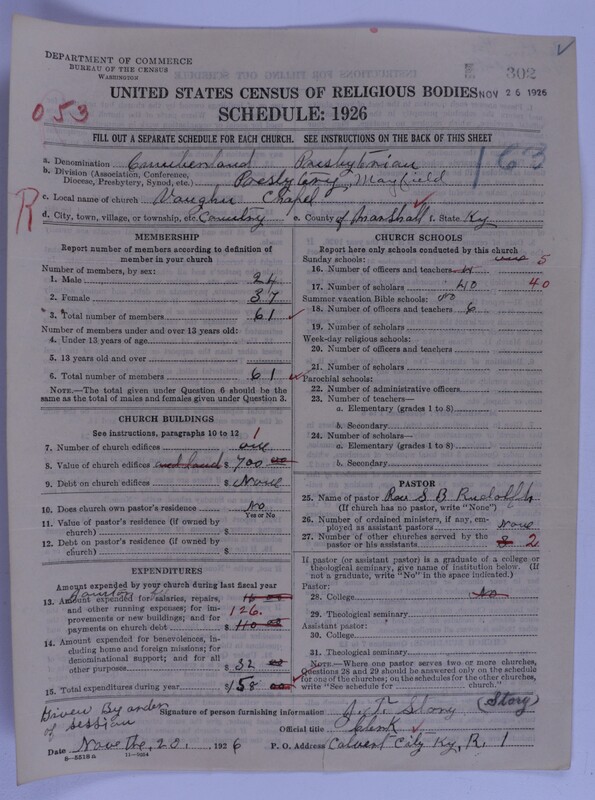 DEPARTMENT OF COMMERCE
BUREAU OF THE CENSUS
WASHINGTON
302
UNITED STATES CENSUS OF RELIGIOUS BODIES NOV 26 1926
053
SCHEDULE: 1926
FILL OUT A SEPARATE SCHEDULE FOR EACH CHURCH. SEE INSTRUCTIONS ON THE BACK OF THIS SHEET
163
a. Denomination Cumberland Presbyterian
b. Division (Association, Conference, Diocese, Presbytery, Synod, etc.) Presbytery, Mayfield
c. Local name of church Vaughn Chapel
R
d. City, town, village, or township, etc. Country e. County of Marshall f. State Ky
MEMBERSHIP
Report number of members according to definition of member in your church
Number of members, by sex:
1. Male 24
2. Female 37
3. Total number of members 61
Number of members under and over 13 years old:
4. Under 13 years of age
5. 13 years old and over
6. Total number of members 61
NOTE.—The total given under Question 6 should be the same as the total of males and females given under Question 3.
CHURCH BUILDINGS
See instructions, paragraphs 10 to 12
7. Number of church edifices one 1
8. Value of church edifices and land $ 700 00
9. Debt on church edifices $ None
10. Does church own pastor's residence No
Yes or No
11. Value of pastor's residence (if owned by church) $
12. Debt on pastor's residence (if owned by church) $
EXPENDITURES
Amount expended by your church during last fiscal year
13. Amount expended for salaries, repairs, and other running expenses; for improvements or new buildings; and for payments on church debt $ 110 00 126.
14. Amount expended for benevolences, including home and foreign missions; for denominational support; and for all other purposes $ 32 00
15. Total expenditures during year $ 158 00
CHURCH SCHOOLS
Report here only schools conducted by this church
Sunday schools:
16. Number of officers and teachers 5
17. Number of scholars 40 40
Summer vacation Bible schools: no
18. Number of officers and teachers 6
19. Number of scholars
Week-day religious schools:
20. Number of officers and teachers
21. Number of scholars
Parochial schools:
22. Number of administrative officers
23. Number of teachers—
a. Elementary (grades 1 to 8)
b. Secondary
24. Number of scholars—
a. Elementary (grades 1 to 8)
b. Secondary
PASTOR
25. Name of pastor Rev S. B. Rudolph
(If church has no pastor, write "None")
26. Number of ordained ministers, if any, employed as assistant pastors None
27. Number of other churches served by the pastor or his assistants 2
If pastor (or assistant pastor) is a graduate of a college or theological seminary, give name of institution below. (If not a graduate, write "No" in the space indicated.)
Pastor:
28. College No
29. Theological seminary
Assistant pastor:
30. College
31. Theological seminary
NOTE.—Where one pastor serves two or more churches, Questions 28 and 29 should be answered only on the schedule for one of the churches; on the schedules for the other churches, write "See schedule for church."
Given By order of session
Signature of person furnishing information Story (Story)
Official title Clerk
Date Nove the, 20, 1926
P. O. Address Calvert City Ky, R. 1